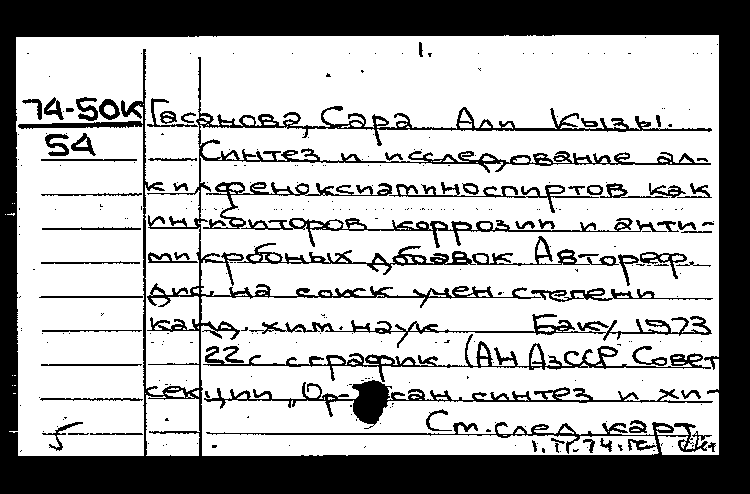 1.
74-50к Гасанова, Сара Али Кызы.
54 Синтез и исследование ал-
килфеноксиаминоспиртов как
ингибиторов коррозии и анти-
микробных добавок. Автореф.
дис. на соиск учен. степени
канд. хим. наук. Баку, 1973
22с с график. (АН АзССР. Совет
секции „Ор- сан. синтез и хи-
5 См. след. карт.